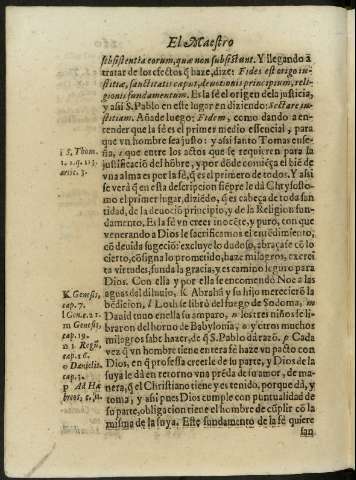 El Maestro
subsistentia eorum, quæ non subsistunt. Y llegando à
tratar de los efectos q̃ haze, dize: Fides est origo iu-
stitiæ, sanctitatis caput, deuotionis principium, reli-
gionis fundamentum. Es la fé el origen de la justicia,
y assi S. Pablo en este lugar en diziendo: Sectare iu-
stitiam. Añade luego: Fidem, como dando a en-
tender que la fé es el primer medio essencial, para
que vn hombre sea justo: y assi santo Tomas ense-
ña, i que entre los actos que se requieren para la
justificació del hõbre, y por dõde comiẽça el biẽ de
vna alma es por la fé, q̃ es el primero de todos. Y assi
se verà q̃ en esta descripcion siẽpre le dà Chrysosto-
mo el primer lugar, diziẽdo, q̃ es cabeça de toda san
tidad, de la deuoció principio, y de la Religion fun-
damento. Es la fé vn creer inocẽte, y puro, con que
venerando a Dios le sacrificamos el entẽdimiento,
cõ deuida sugeció: excluye lo dudoso, abraçase cõ lo
cierto, cõsigna lo prometido, haze milagros, exerci
ta virtudes, funda la gracia, y es camino seguro para
Dios. Con ella y por ella se encomendò Noe a las
aguas del diluuio, K Abrahã y su hijo merecierõ la
bẽdicion, l Loth se librò del fuego de Sodoma, m
Dauid tuuo en ella su amparo, n los tres niños se li-
braron del horno de Babylonia, o y otros muchos
milagros sabe hazer, de q̃ S. Pablo dà razõ. p Cada
vez q̃ vn hombre tiene en esta fé haze vn pacto con
Dios, en q̃ professa creer lo de su parte, y Dios de la
suya le dà en retorno vna prẽda de su amor, de ma-
nera, q̃ el Christiano tiene y es tenido, porque dà, y
toma; y assi pues Dios cumple con puntualidad de
su parte, obligacion tiene el hombre de cũplir cõ la
misma de la suya. Este fundamento de la fé quiere
san
i S. Thom.
1. 2. q. 113.
artic. 3.
K Genesis,
cap. 7.
l Gene. 22.
m Genesis,
cap. 19.
n 1. Regũ,
cap. 16.
o Danielis,
cap. 3.
p Ad Hæ
breos, c. 11.